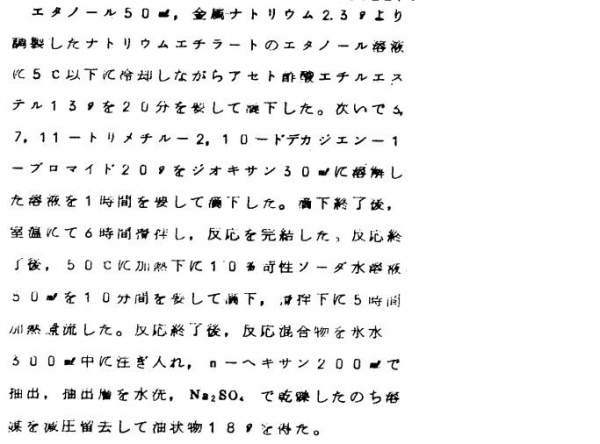 エタノール50ml，金属ナトリウム2.3gより
調製したナトリウムエチラートのエタノール溶液
に5℃以下に冷却しながらアセト酢酸エチルエス
テル13gを20分を要して滴下した。次いで3,
7,11ートリメチルー2,10ードデカジエンー1
ーブロマイド20gをジオキサン30mlに溶解し
た溶液を1時間を要して滴下した。滴下終了後，
室温にて6時間攪拌し，反応を完結した。反応終
了後，50℃に加熱下に10%苛性ソーダ水溶液
50mlを10分間を要して滴下，攪拌下に5時間
加熱還流した。反応終了後，反応混合物を氷水
300ml中に注ぎ入れ，nーヘキサン200mlで
抽出，抽出層を水洗，Na₂SO₄ で乾燥したのち溶
媒を減圧留去して油状物18gを得た。